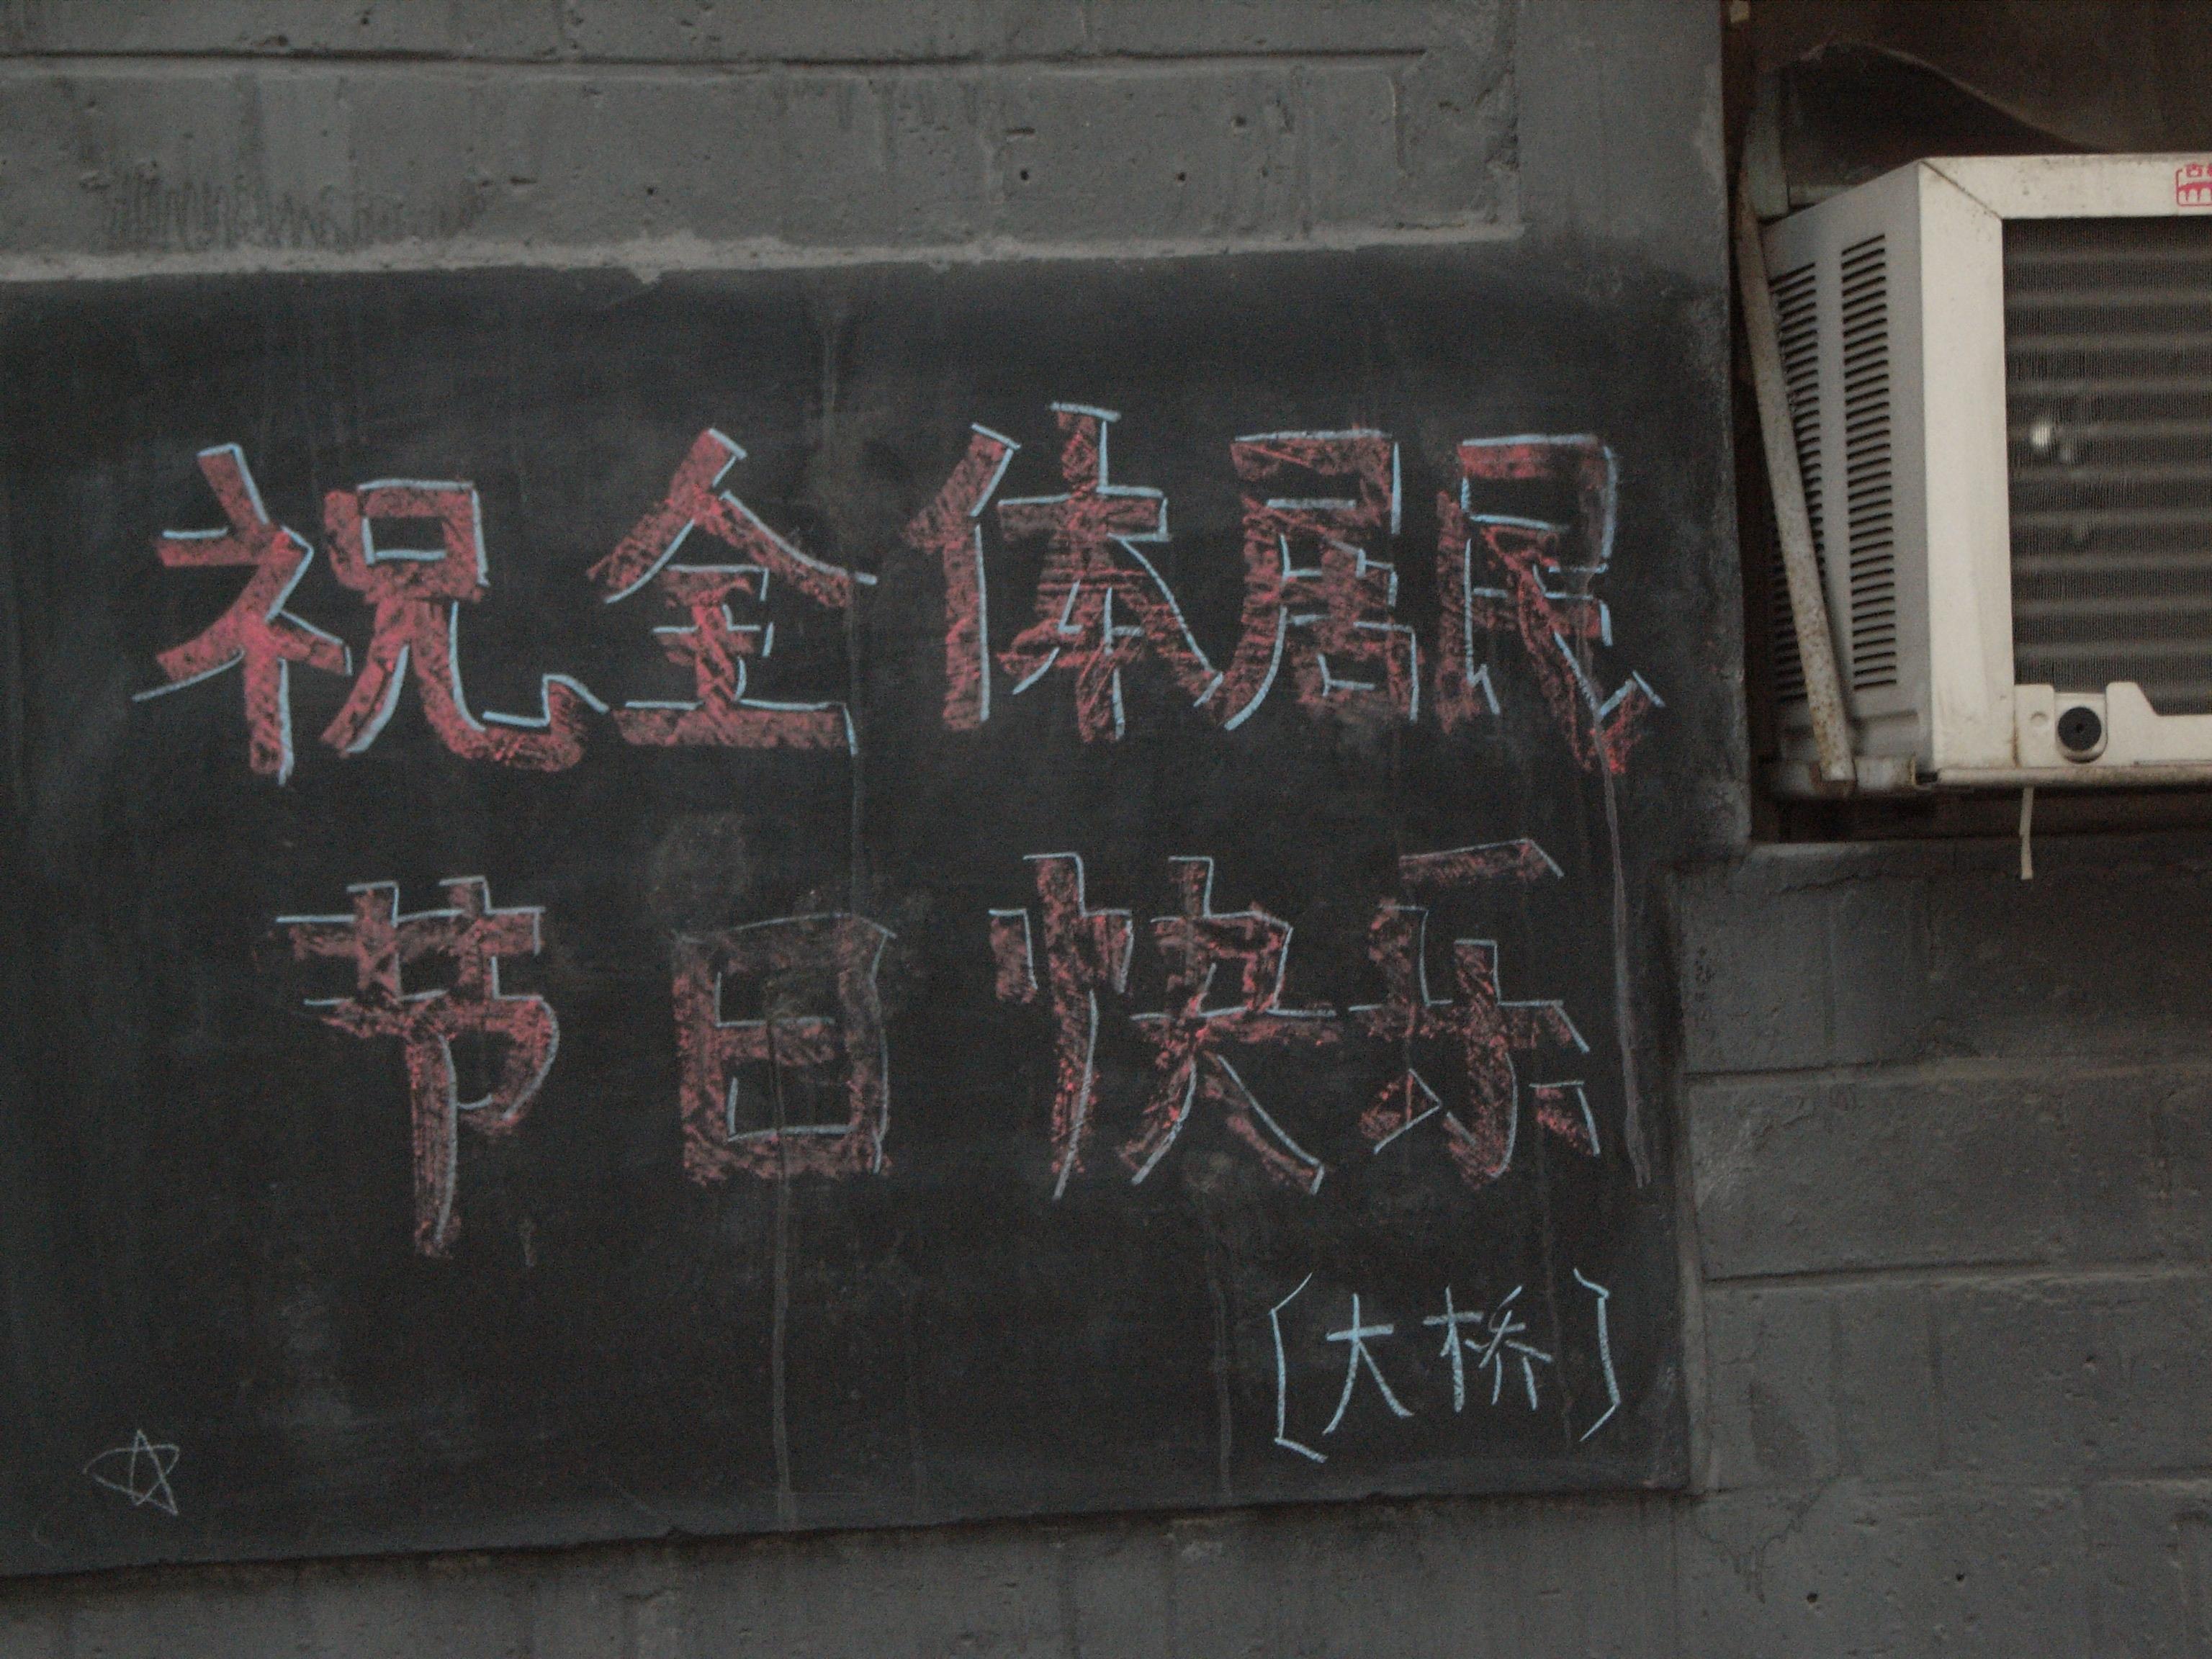 祝全体居民
节日快乐
〔大桥〕